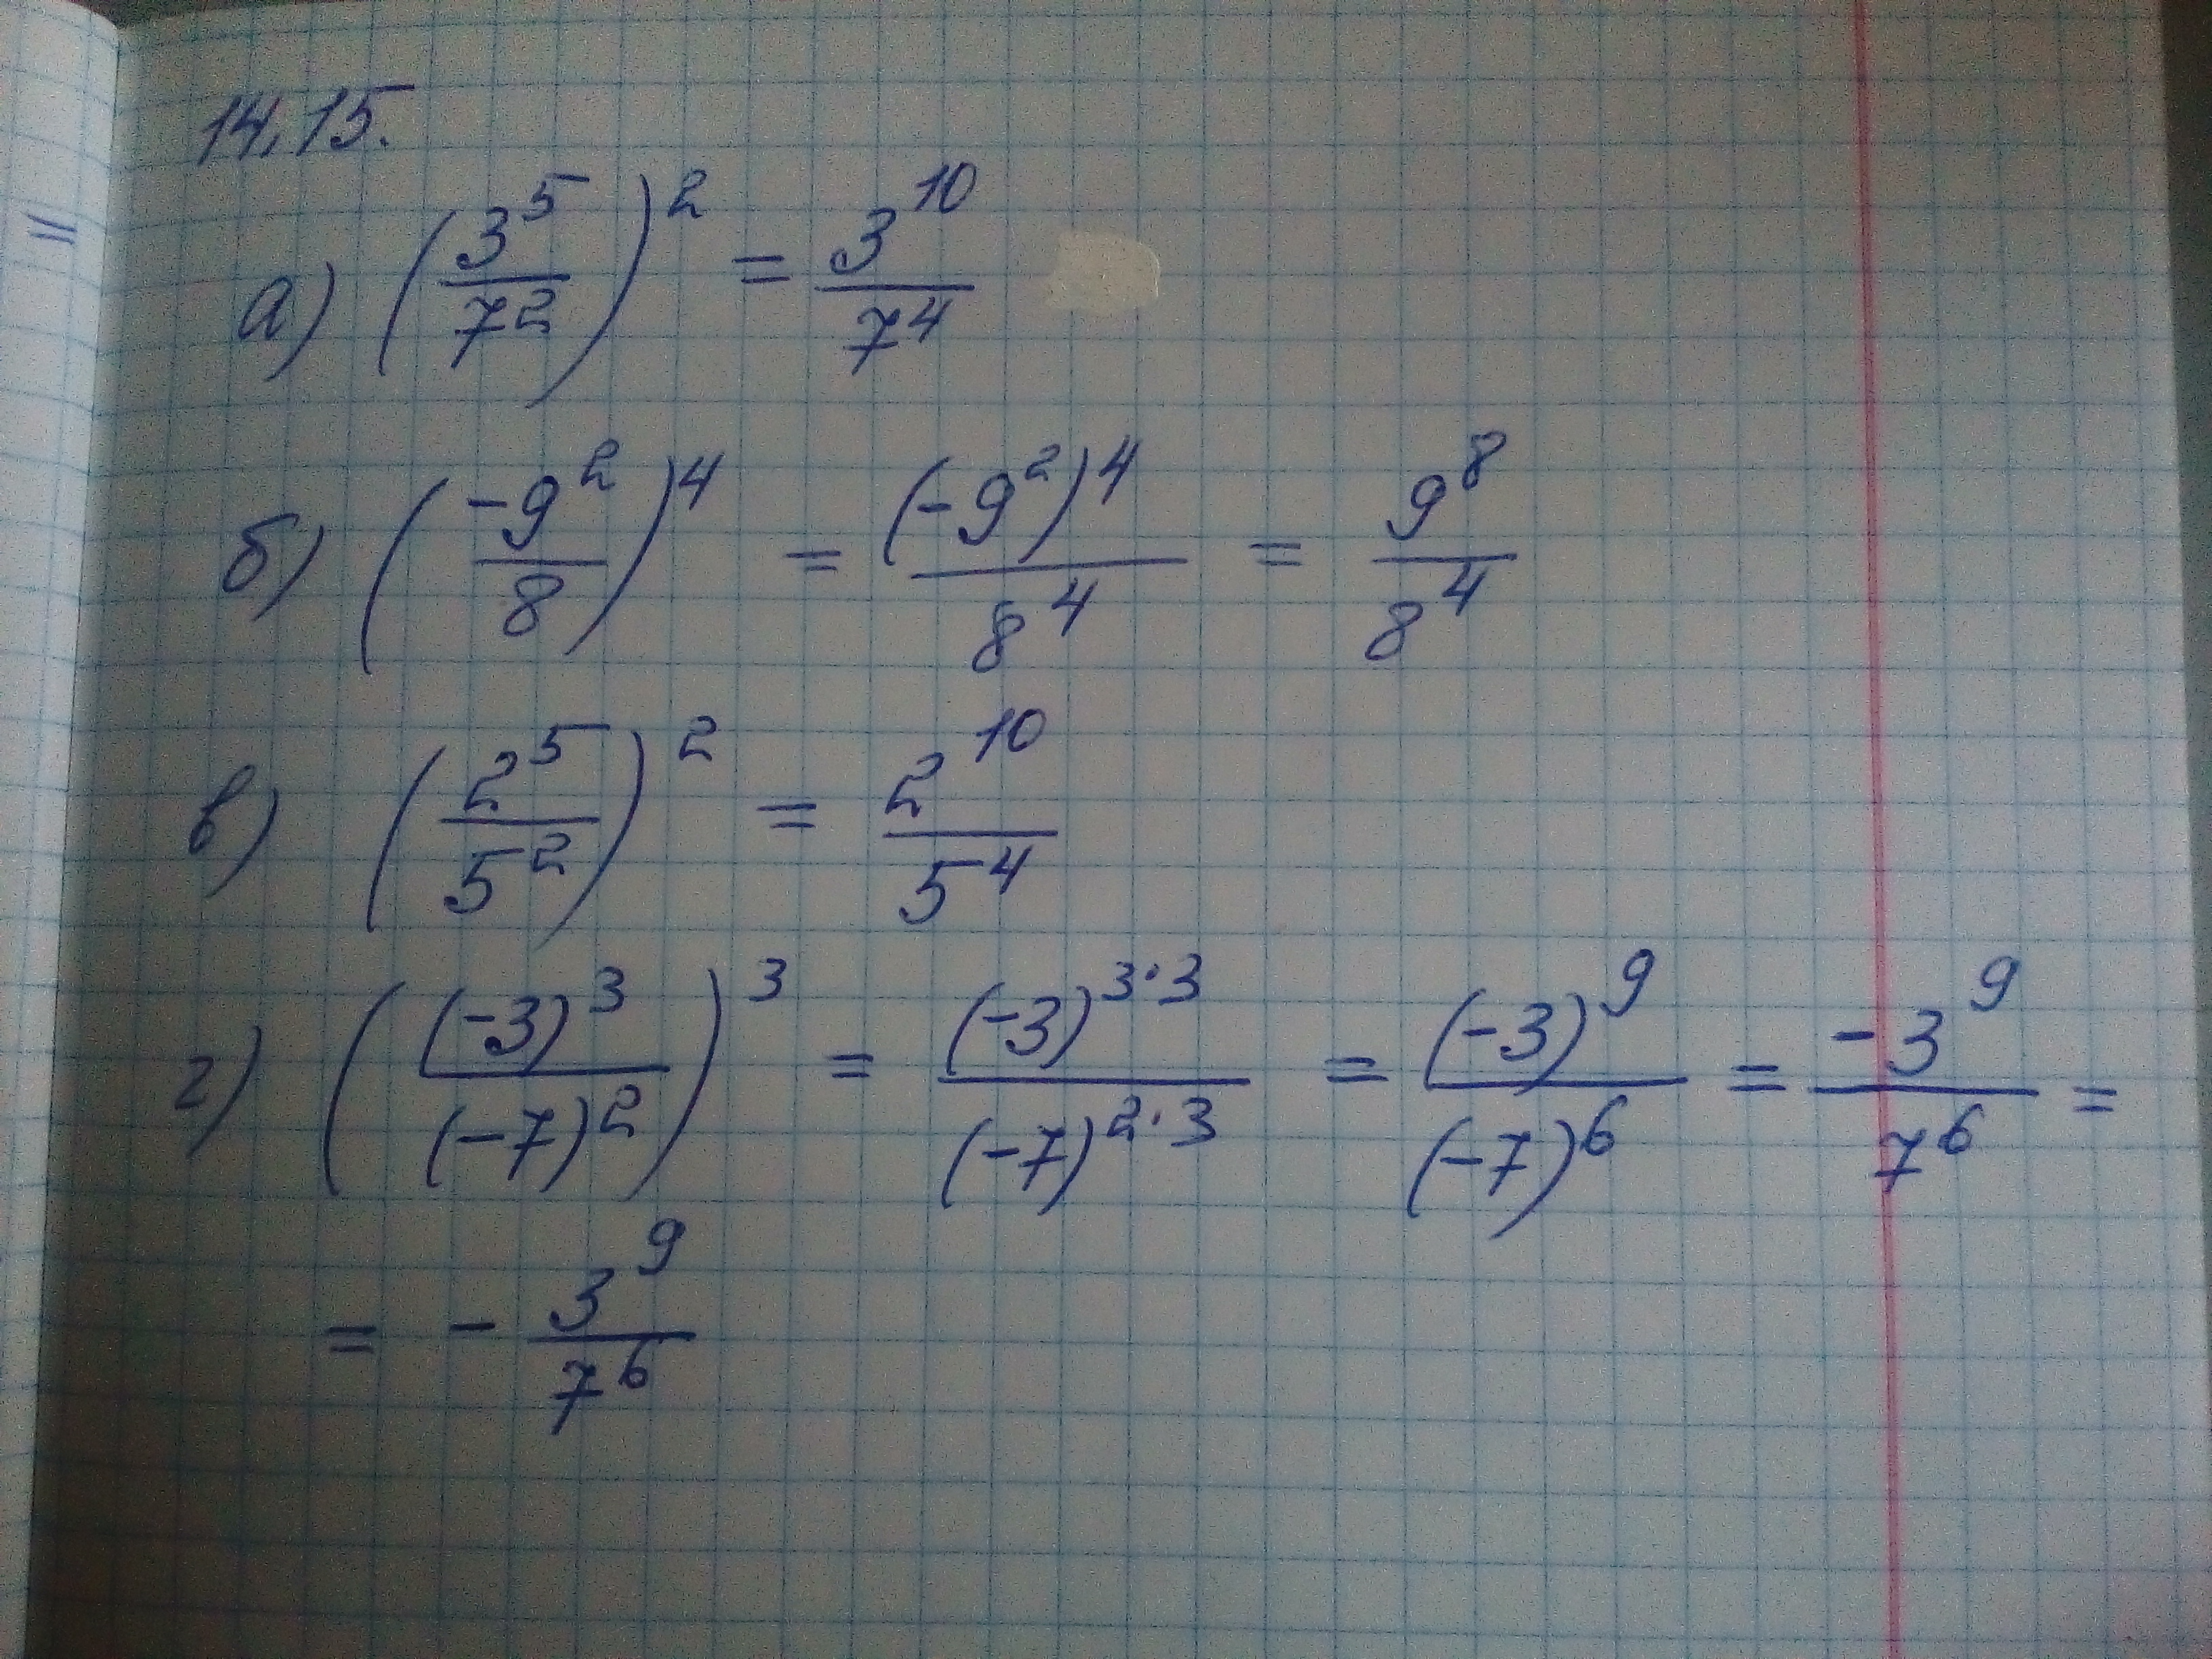 =
14.15.
а) (3^5/7^2)^2 = 3^10/7^4
б) (-9^2/8)^4 = (-9^2)^4/8^4 = 9^8/8^4
в) (2^5/5^2)^2 = 2^10/5^4
г) ((-3)^3/(-7)^2)^3 = (-3)^3·3/(-7)^2·3 = (-3)^9/(-7)^6 = -3^9/7^6 =
= - 3^9/7^6